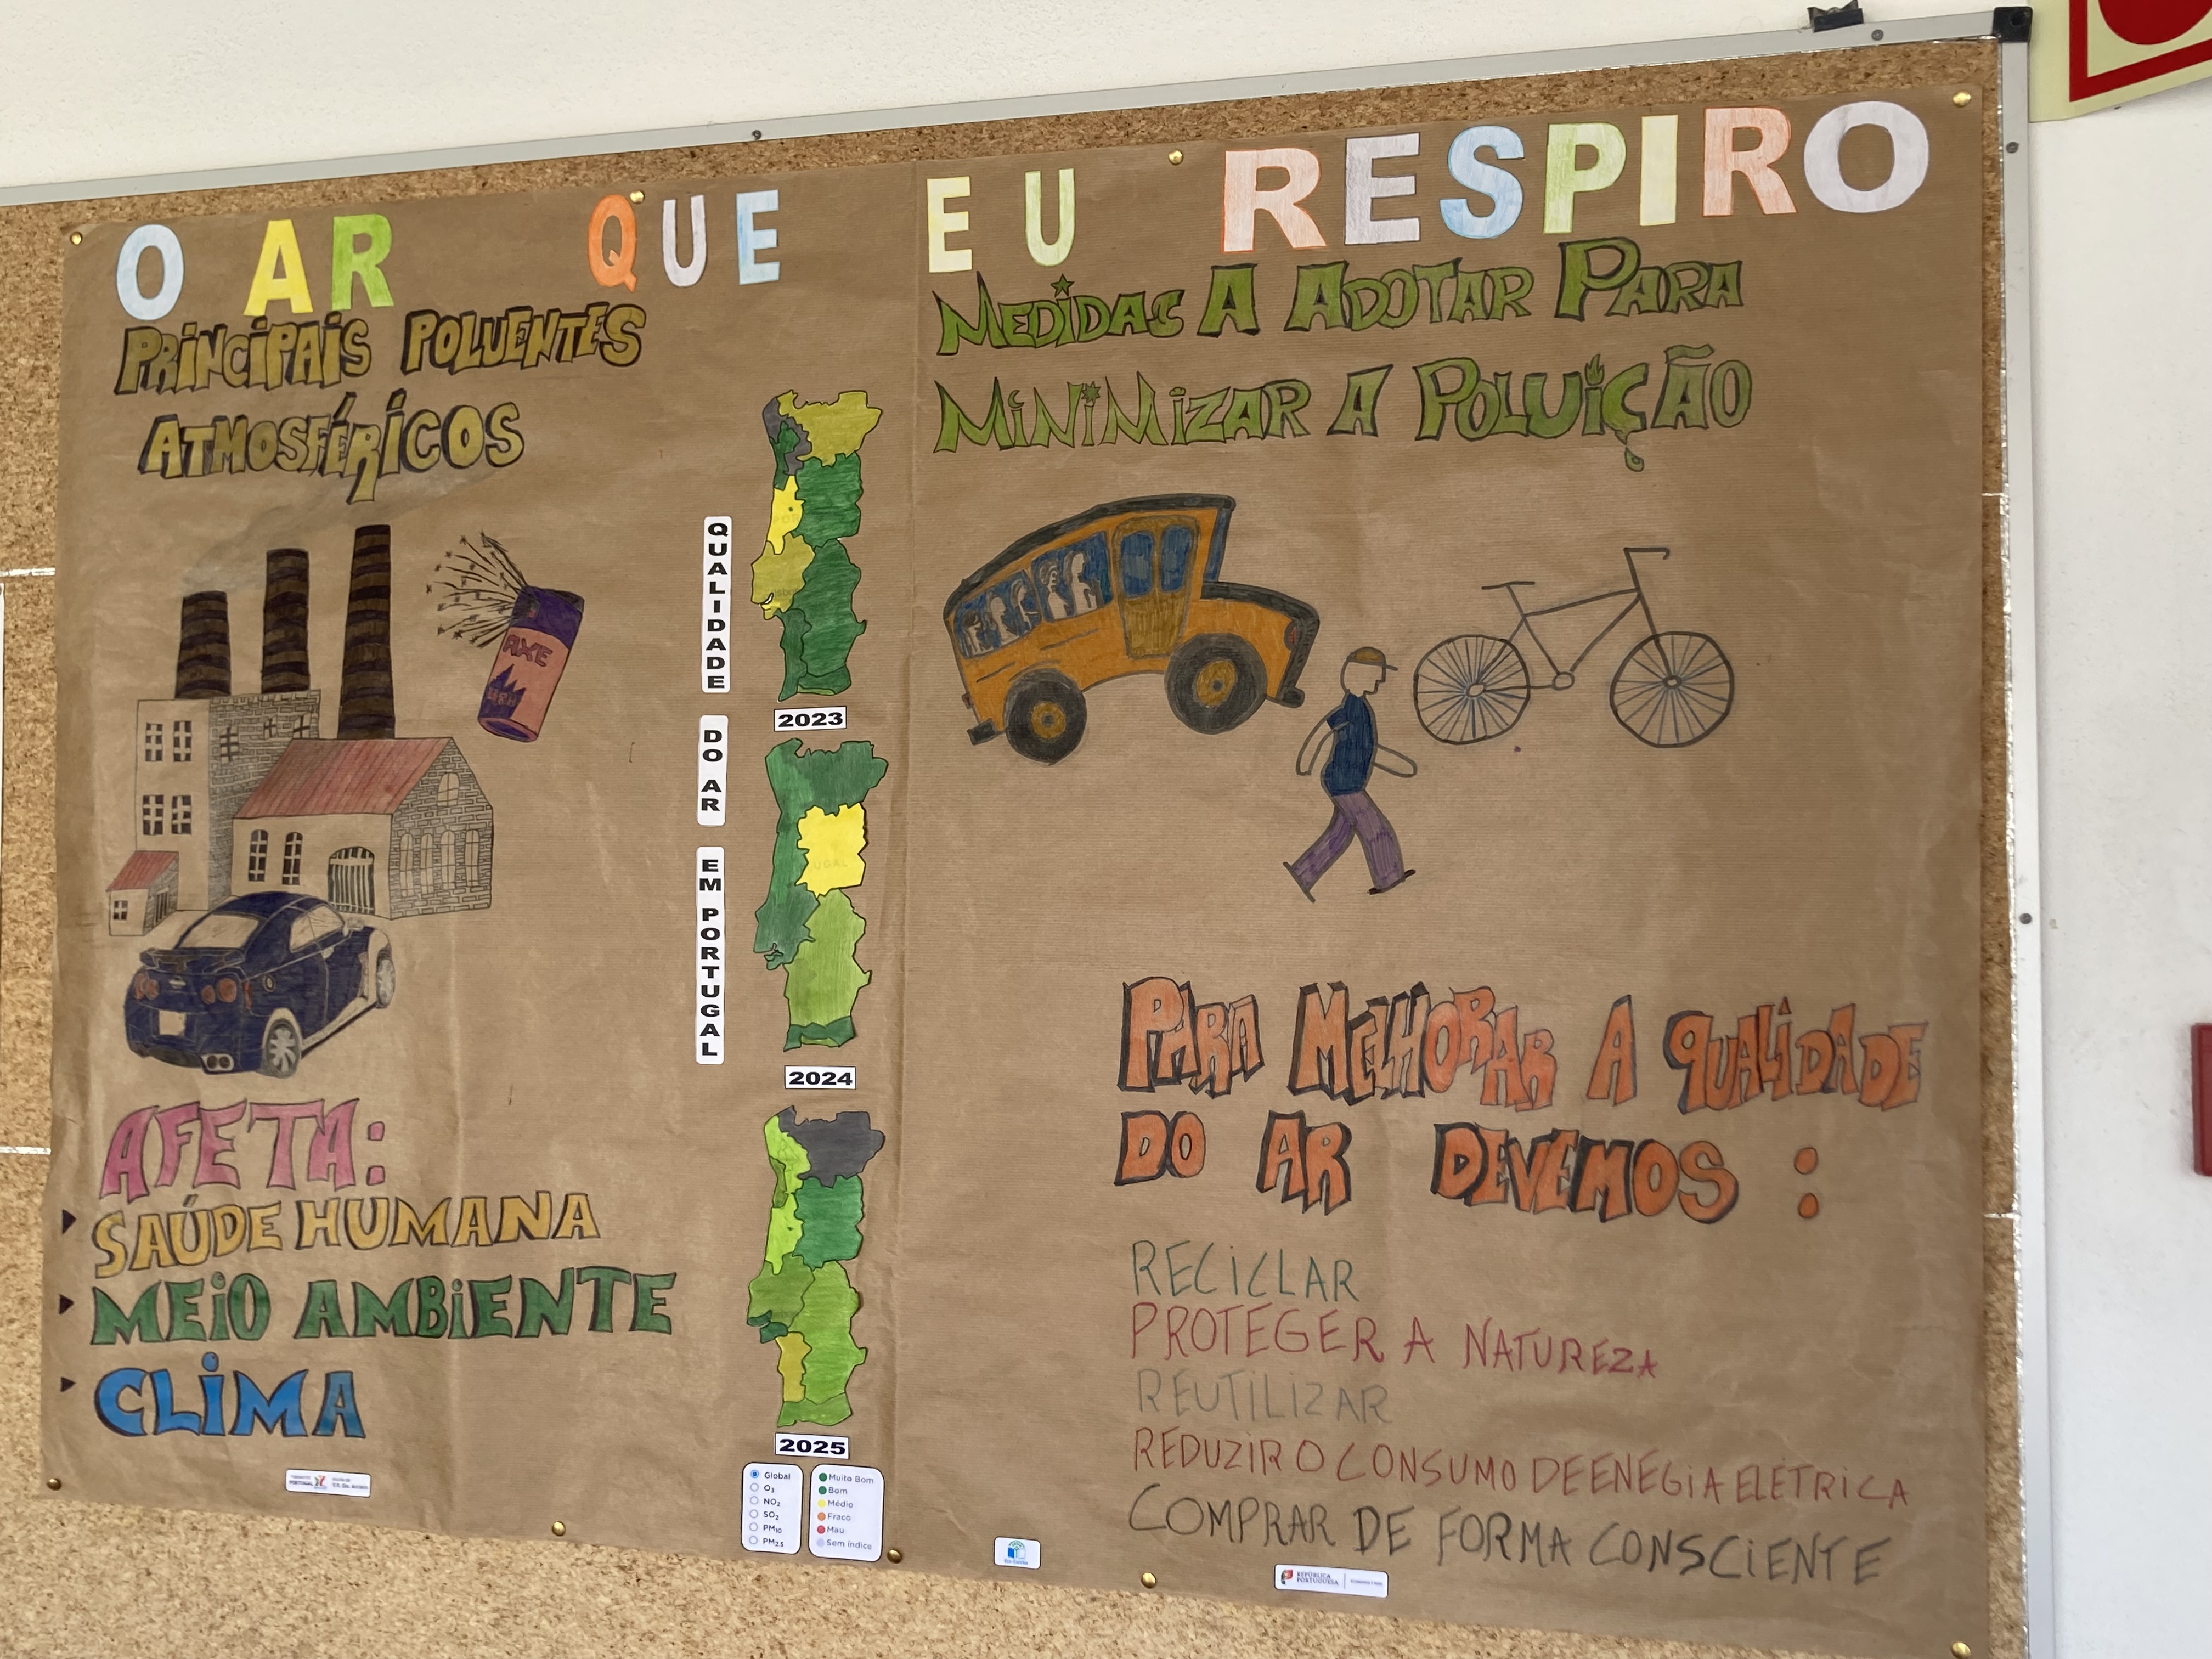 O AR QUE EU RESPIRO
PRINCIPAIS POLUENTES
ATMOSFÉRICOS
AXE
AFETA:
SAÚDE HUMANA
MEIO AMBIENTE
CLIMA
QUALIDADE
DO AR
EM PORTUGAL
2023
2024
2025
Global
O3
NO2
SO2
PM10
PM2.5
Muito Bom
Bom
Médio
Fraco
Mau
Sem índice
MEDIDAS A ADOTAR PARA
MINIMIZAR A POLUIÇÃO
PARA MELHORAR A QUALIDADE
DO AR DEVEMOS :
RECICLAR
PROTEGER A NATUREZA
REUTILIZAR
REDUZIR O CONSUMO DE ENEGIA ELÉTRICA
COMPRAR DE FORMA CONSCIENTE
REPÚBLICA
PORTUGUESA